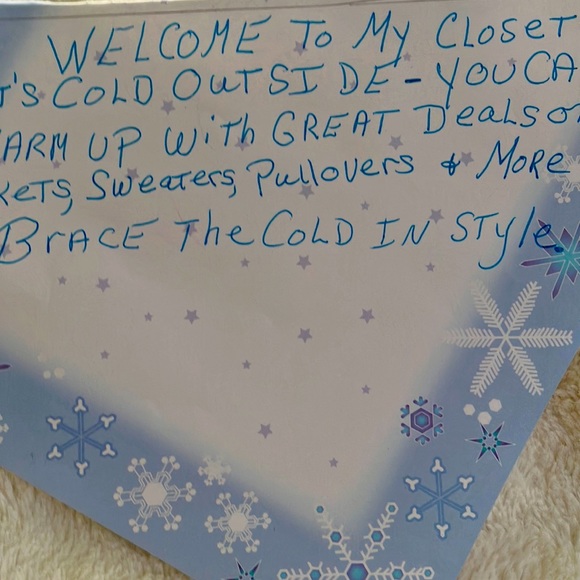 WELCOME To My CLOSET
T'S COLD OUTSIDE - YOU CA
ARM UP WiTh GREAT DeaLS O
KETS, SweaTers, Pullovers & MORE
BrACE The COLD IN STyle.